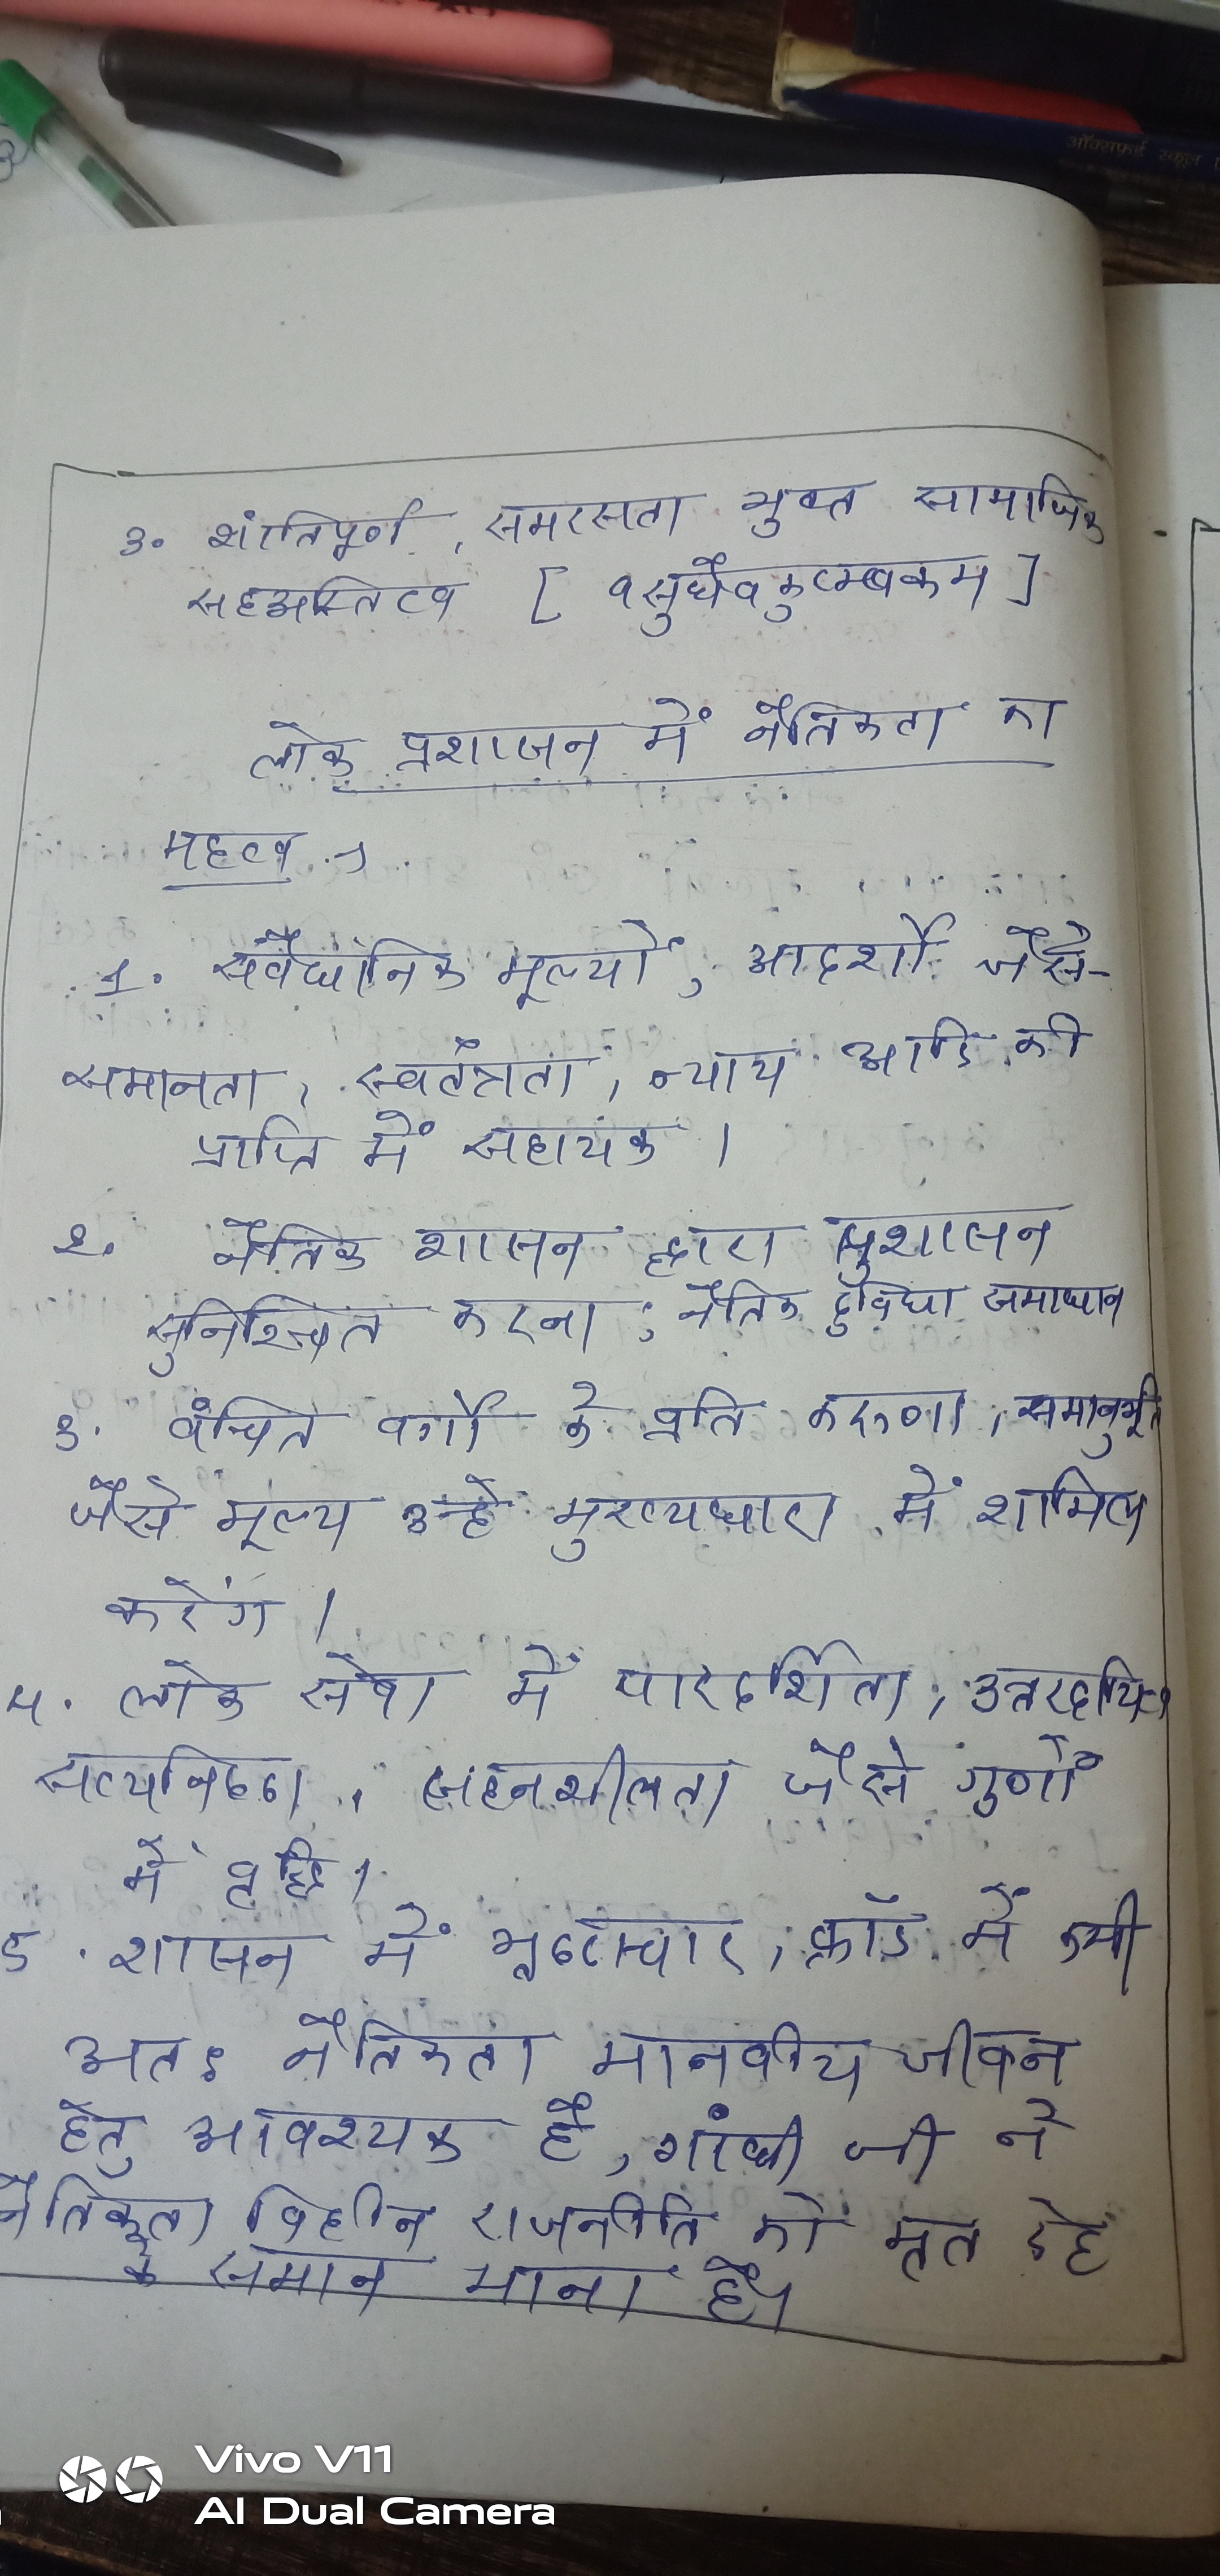 ऑक्सफ़र्ड स्कूल
3. शांतिपूर्ण, समरसता युक्त सामाजिक
सहअस्तित्व [ वसुधैवकुटम्बकम ]
लोक प्रशासन में नैतिकता का
महत्व →
1. संवैधानिक मूल्यों, आदर्शों जैसे-
समानता, स्वतंत्रता, न्याय आदि की
प्राप्ति में सहायक ।
2. नैतिक शासन द्वारा सुशासन
सुनिश्चित करना ; नैतिक दुविधा समाधान
3. वंचित वर्गों के प्रति करुणा, समानुभूति
जैसे मूल्य उन्हें मुख्यधारा में शामिल
करेंगे ।
4. लोक सेवा में पारदर्शिता, उत्तरदायित्व
सत्यनिष्ठा, सहनशीलता जैसे गुणों
में वृद्धि ।
5. शासन में भ्रष्टाचार, फ्रॉड में कमी
अतः नैतिकता मानवीय जीवन
हेतु आवश्यक है, गांधी जी ने
नैतिकता विहीन राजनीति को मृत देह
के समान माना है।
Vivo V11
AI Dual Camera